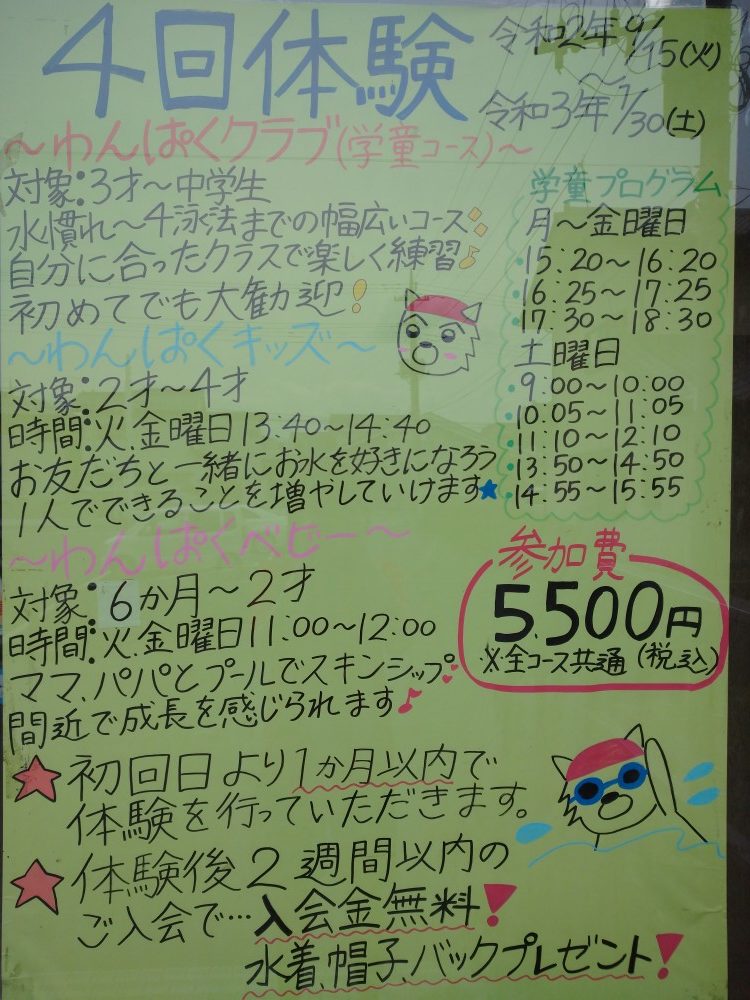 4回体験
令和2年9/15(火)
〜
令和3年1/30(土)
〜わんぱくクラブ(学童コース)〜
対象:3才〜中学生
水慣れ〜4泳法までの幅広いコース
自分に合ったクラスで楽しく練習♪
初めてでも大歓迎!
学童プログラム
月〜金曜日
・15:20〜16:20
・16:25〜17:25
・17:30〜18:30
土曜日
・9:00〜10:00
・10:05〜11:05
・11:10〜12:10
・13:50〜14:50
・14:55〜15:55
〜わんぱくキッズ〜
対象:2才〜4才
時間:火.金曜日13:40〜14:40
お友だちと一緒にお水を好きになろう
1人でできることを増やしていけます★
〜わんぱくベビー〜
対象:6か月〜2才
時間:火.金曜日11:00〜12:00
ママ、パパとプールでスキンシップ
間近で成長を感じられます♪
参加費
5,500円
※全コース共通(税込)
★初回日より1か月以内で
体験を行っていただきます。
★体験後2週間以内の
ご入会で…入会金無料!
水着、帽子、バックプレゼント!